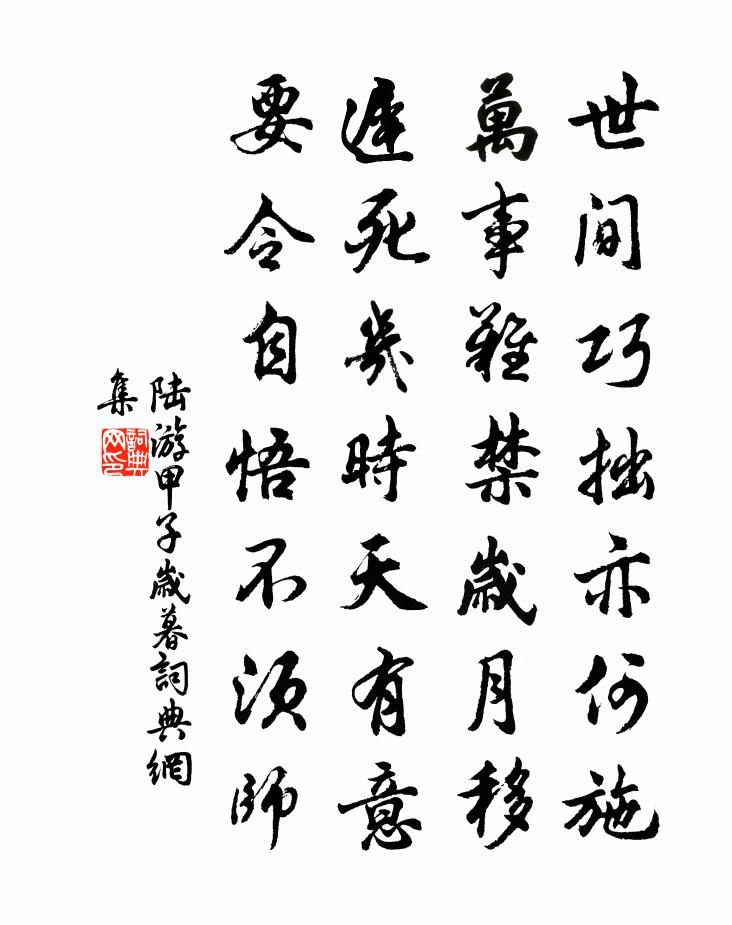 世间巧拙亦何施
萬事難禁歲月移
遲死幾時天有意
要令自悟不須師
陆游甲子歲暮詞典網
集
詞典
网印